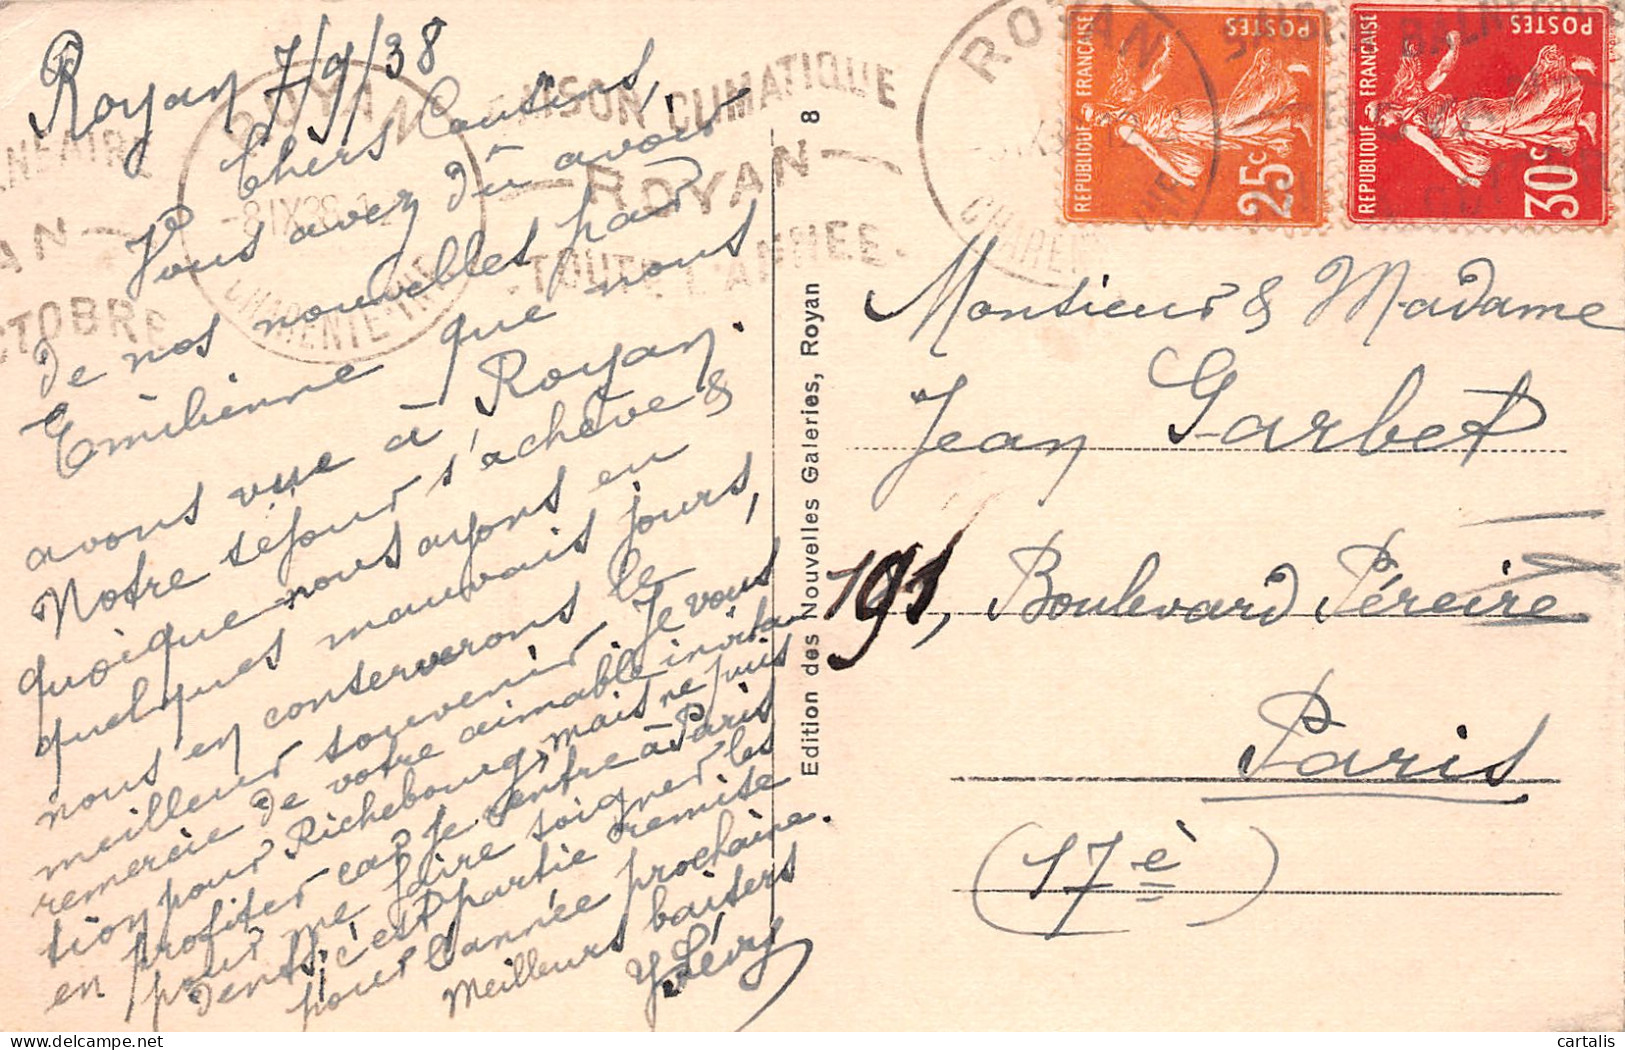 Royan 7/9/38
Chers Cousins,
Vous avez dû avoir
de nos nouvelles par
Emilienne que nous
avons vue à Royan.
Notre séjour s'achève &
quoique nous ayons eu
quelques mauvais jours,
nous en conserverons le
meilleur souvenir. Je vous
remercie de votre aimable invita-
tion pour Richebourg, mais ne puis
en profiter car je rentre à Paris
pour me faire soigner les
dents, c'est partie remise
pour l'année prochaine.
Meilleurs baisers
Y Lévy
ROYAN
-8 IX 38
CHARENTE-INFRE
SAISON CLIMATIQUE
ROYAN
TOUTE L'ANNEE
OCTOBRE
Edition des Nouvelles Galeries, Royan 8
ROYAN
REPUBLIQUE FRANÇAISE
POSTES
25c
REPUBLIQUE FRANÇAISE
POSTES
30c
Monsieur & Madame
Jean Garbet
191, Boulevard Péreire
Paris
(17è)
cartalis
delcampe.net